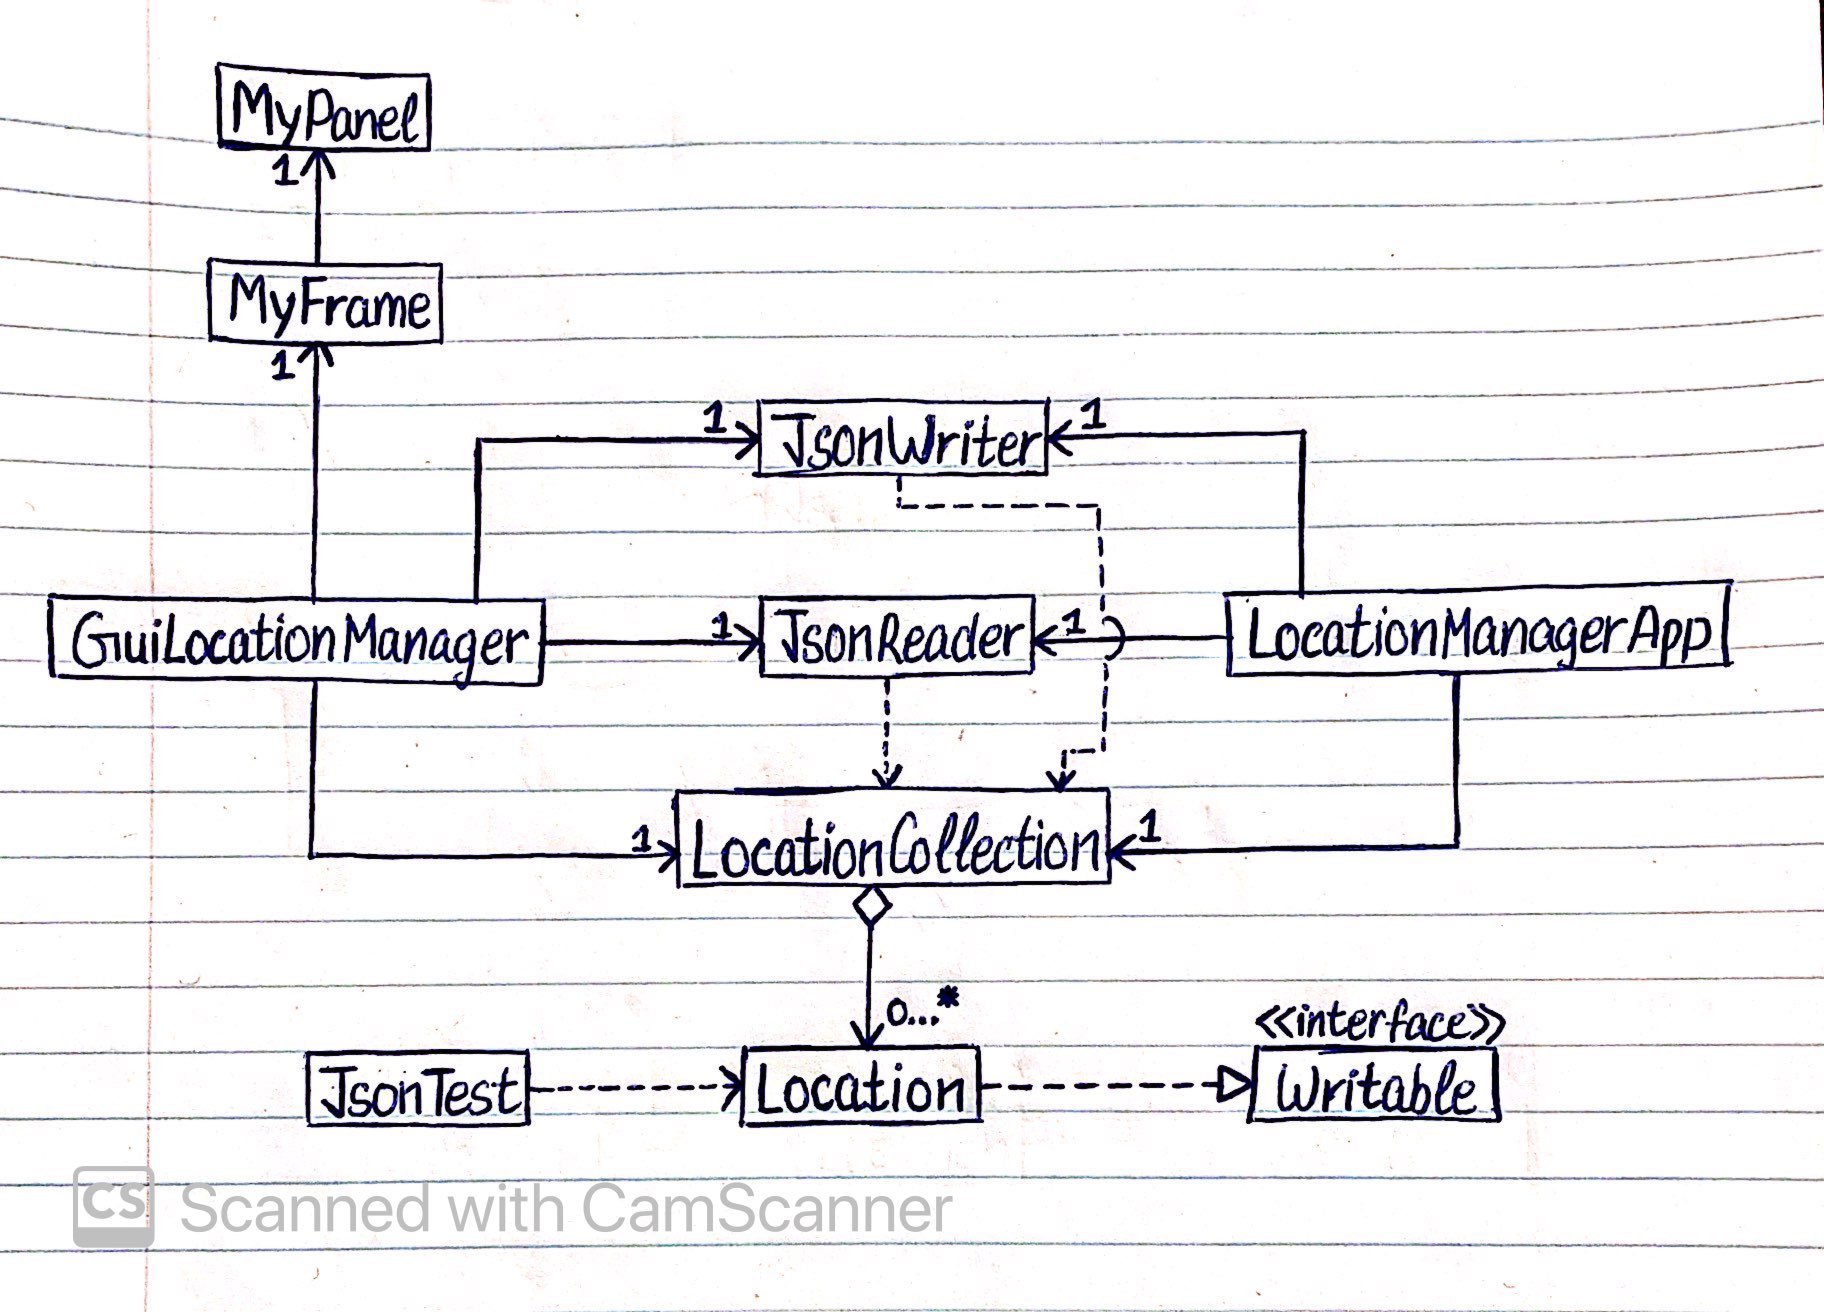 MyPanel
1
MyFrame
1
1 JsonWriter 1
GuiLocationManager 1 JsonReader 1 LocationManagerApp
1 LocationCollection 1
0...*
<<interface>>
JsonTest Location Writable
CS Scanned with CamScanner